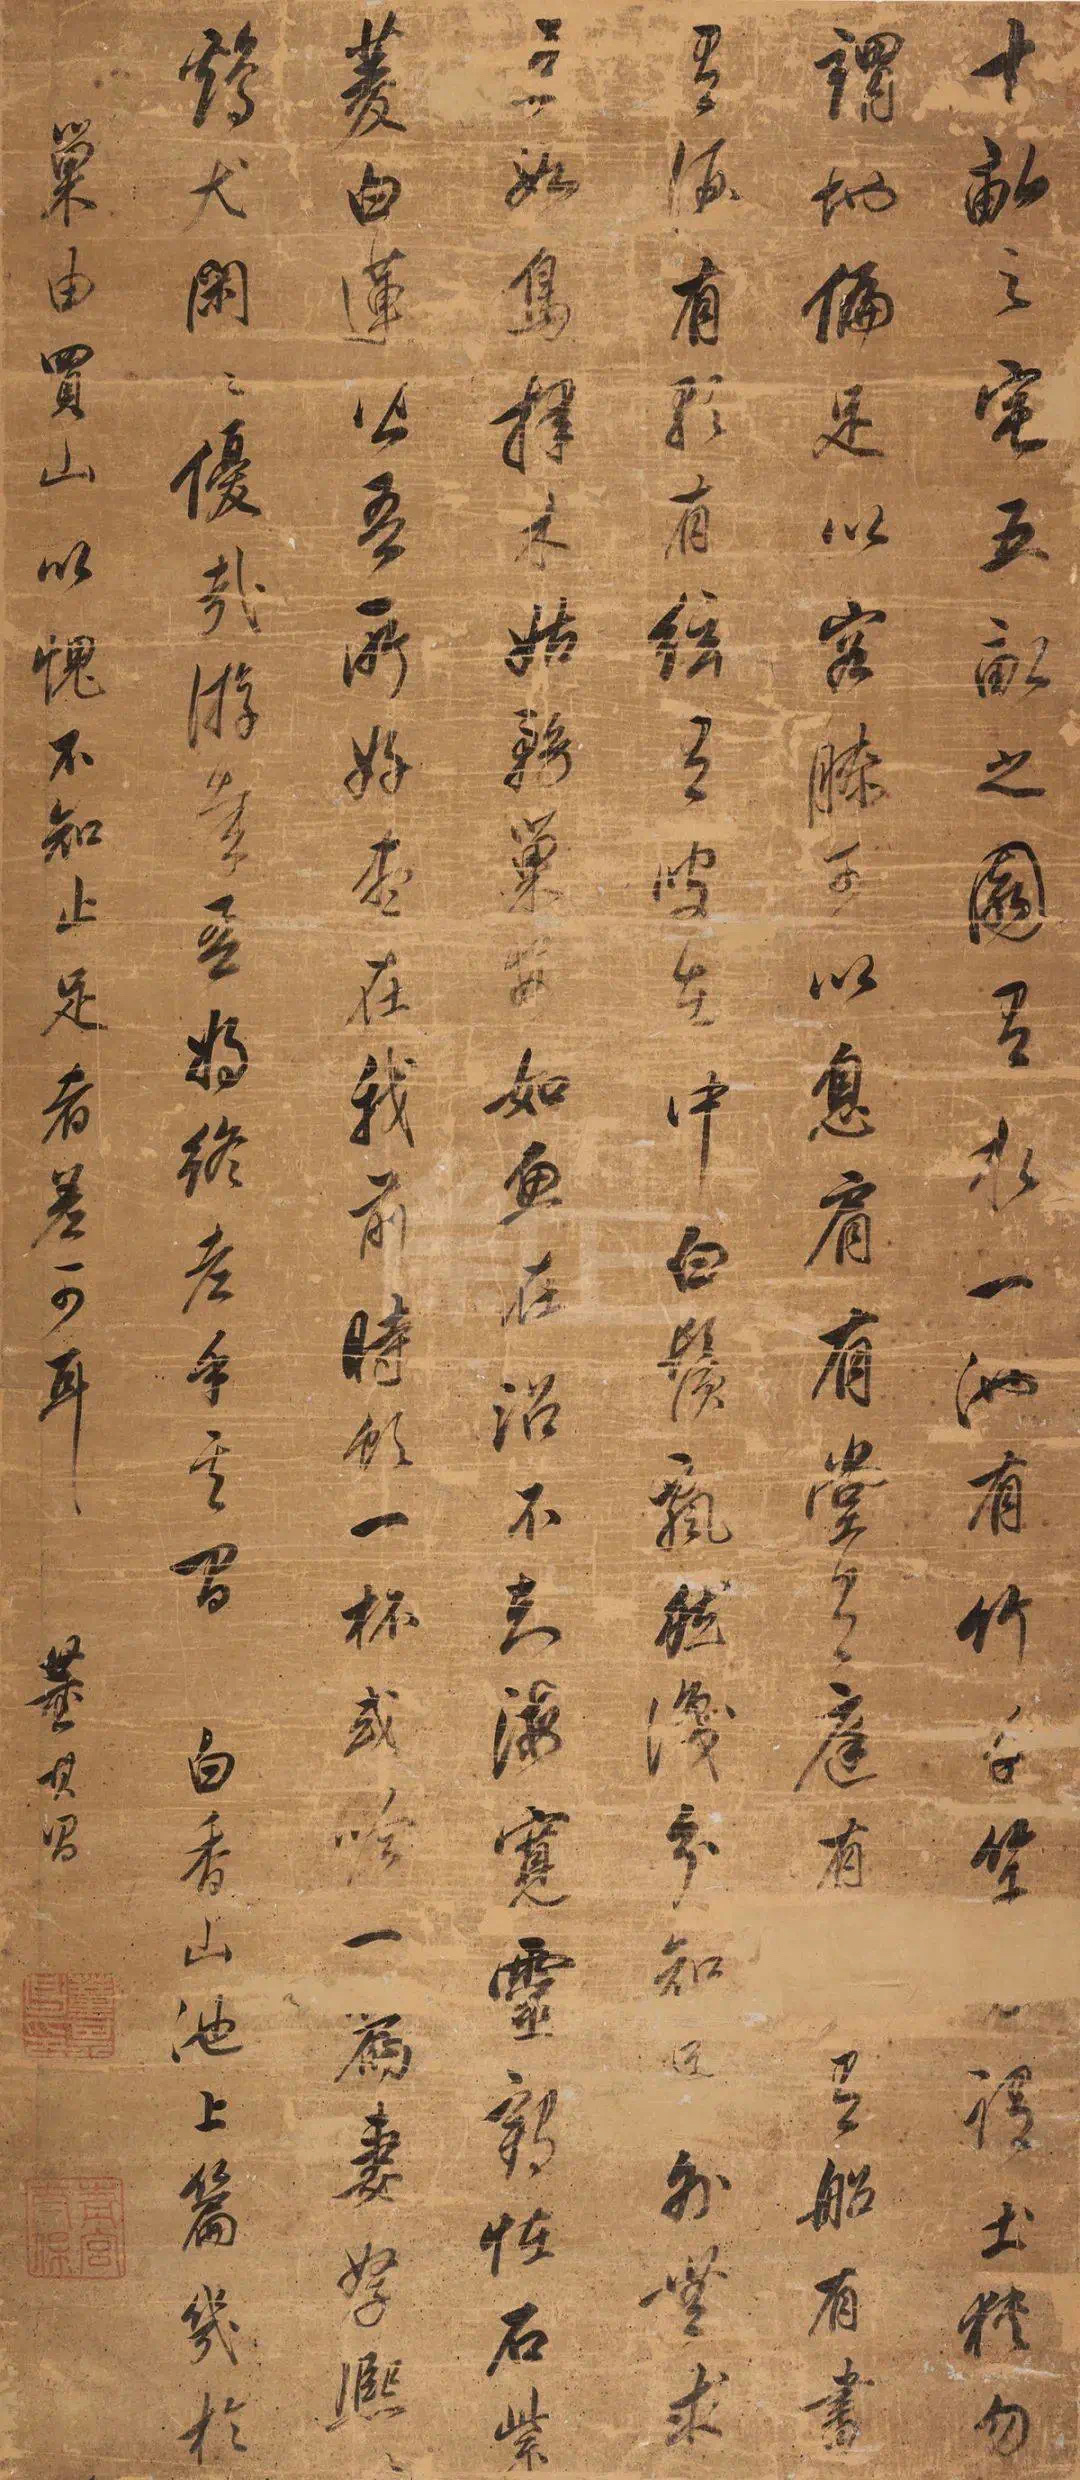 十畝之宅五畝之園有水一池有竹千竿勿謂土狹勿
謂地偏足以容膝可以息肩有堂有庭有橋有船有書
有酒有歌有絃有叟在中白鬚飄然識分知足外無求
焉如鳥擇木姑務巢安如魚在沼不知海寬靈鶴怪石紫
菱白蓮皆吾所好盡在我前時飲一杯或吟一篇妻孥熙〻
鷄犬閑〻優哉游哉吾將終老乎其間 白香山池上篇幾於
巢由買山以愧不知止足者差可耳 董其昌
董其昌印
青宮太保